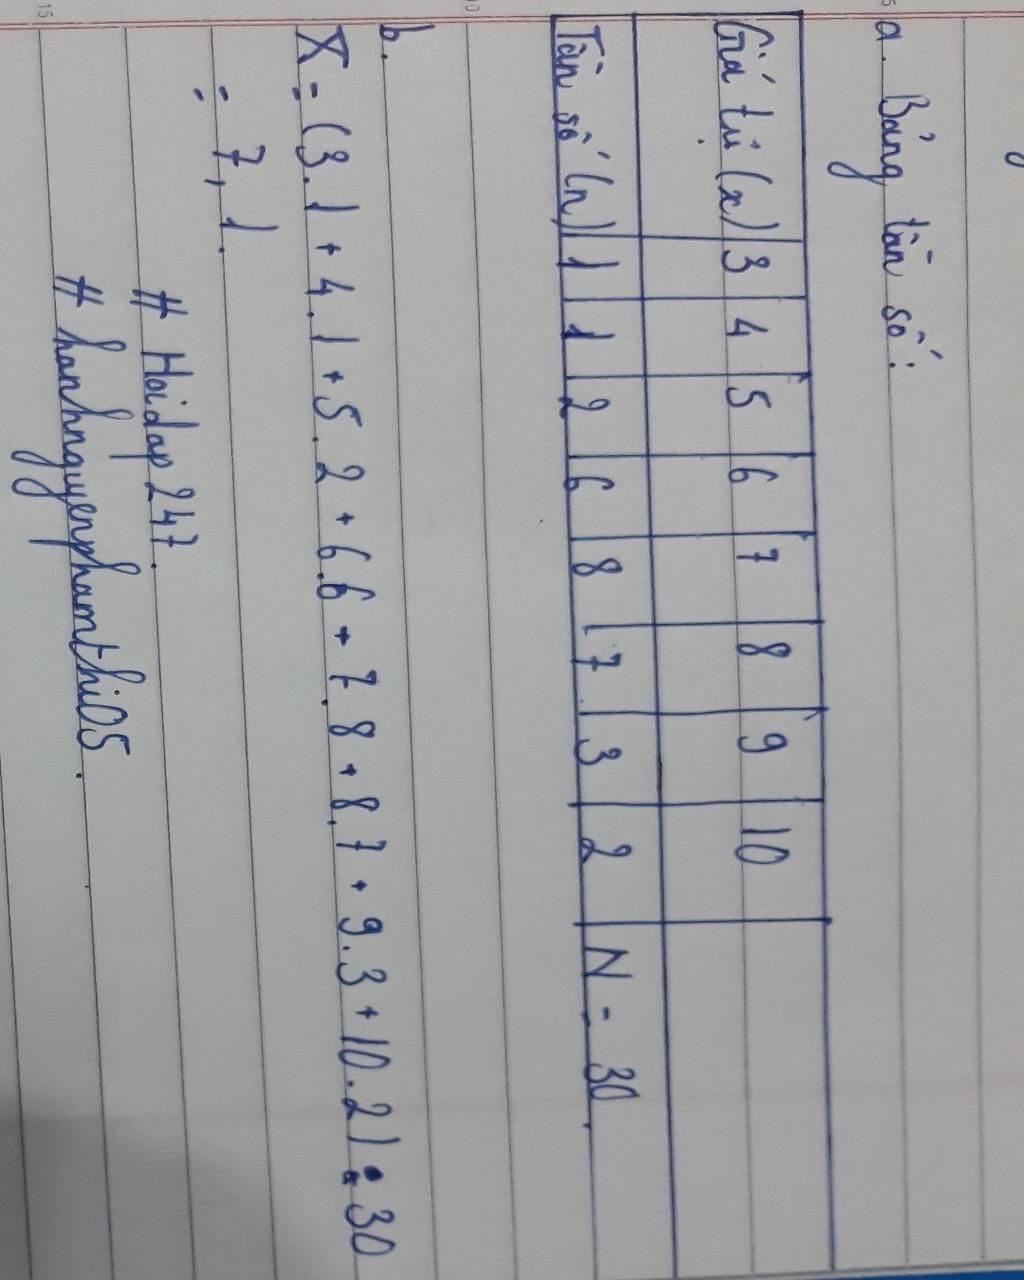 a. Bảng tần số:
Giá trị (x) 3 4 5 6 7 8 9 10
Tần số (n) 1 1 2 6 8 7 3 2 N = 30.
b.
X = (3.1 + 4.1 + 5.2 + 6.6 + 7.8 + 8.7 + 9.3 + 10.2) : 30
= 7,1.
# Hoidap247.
# hanhnguyenphamthi05.